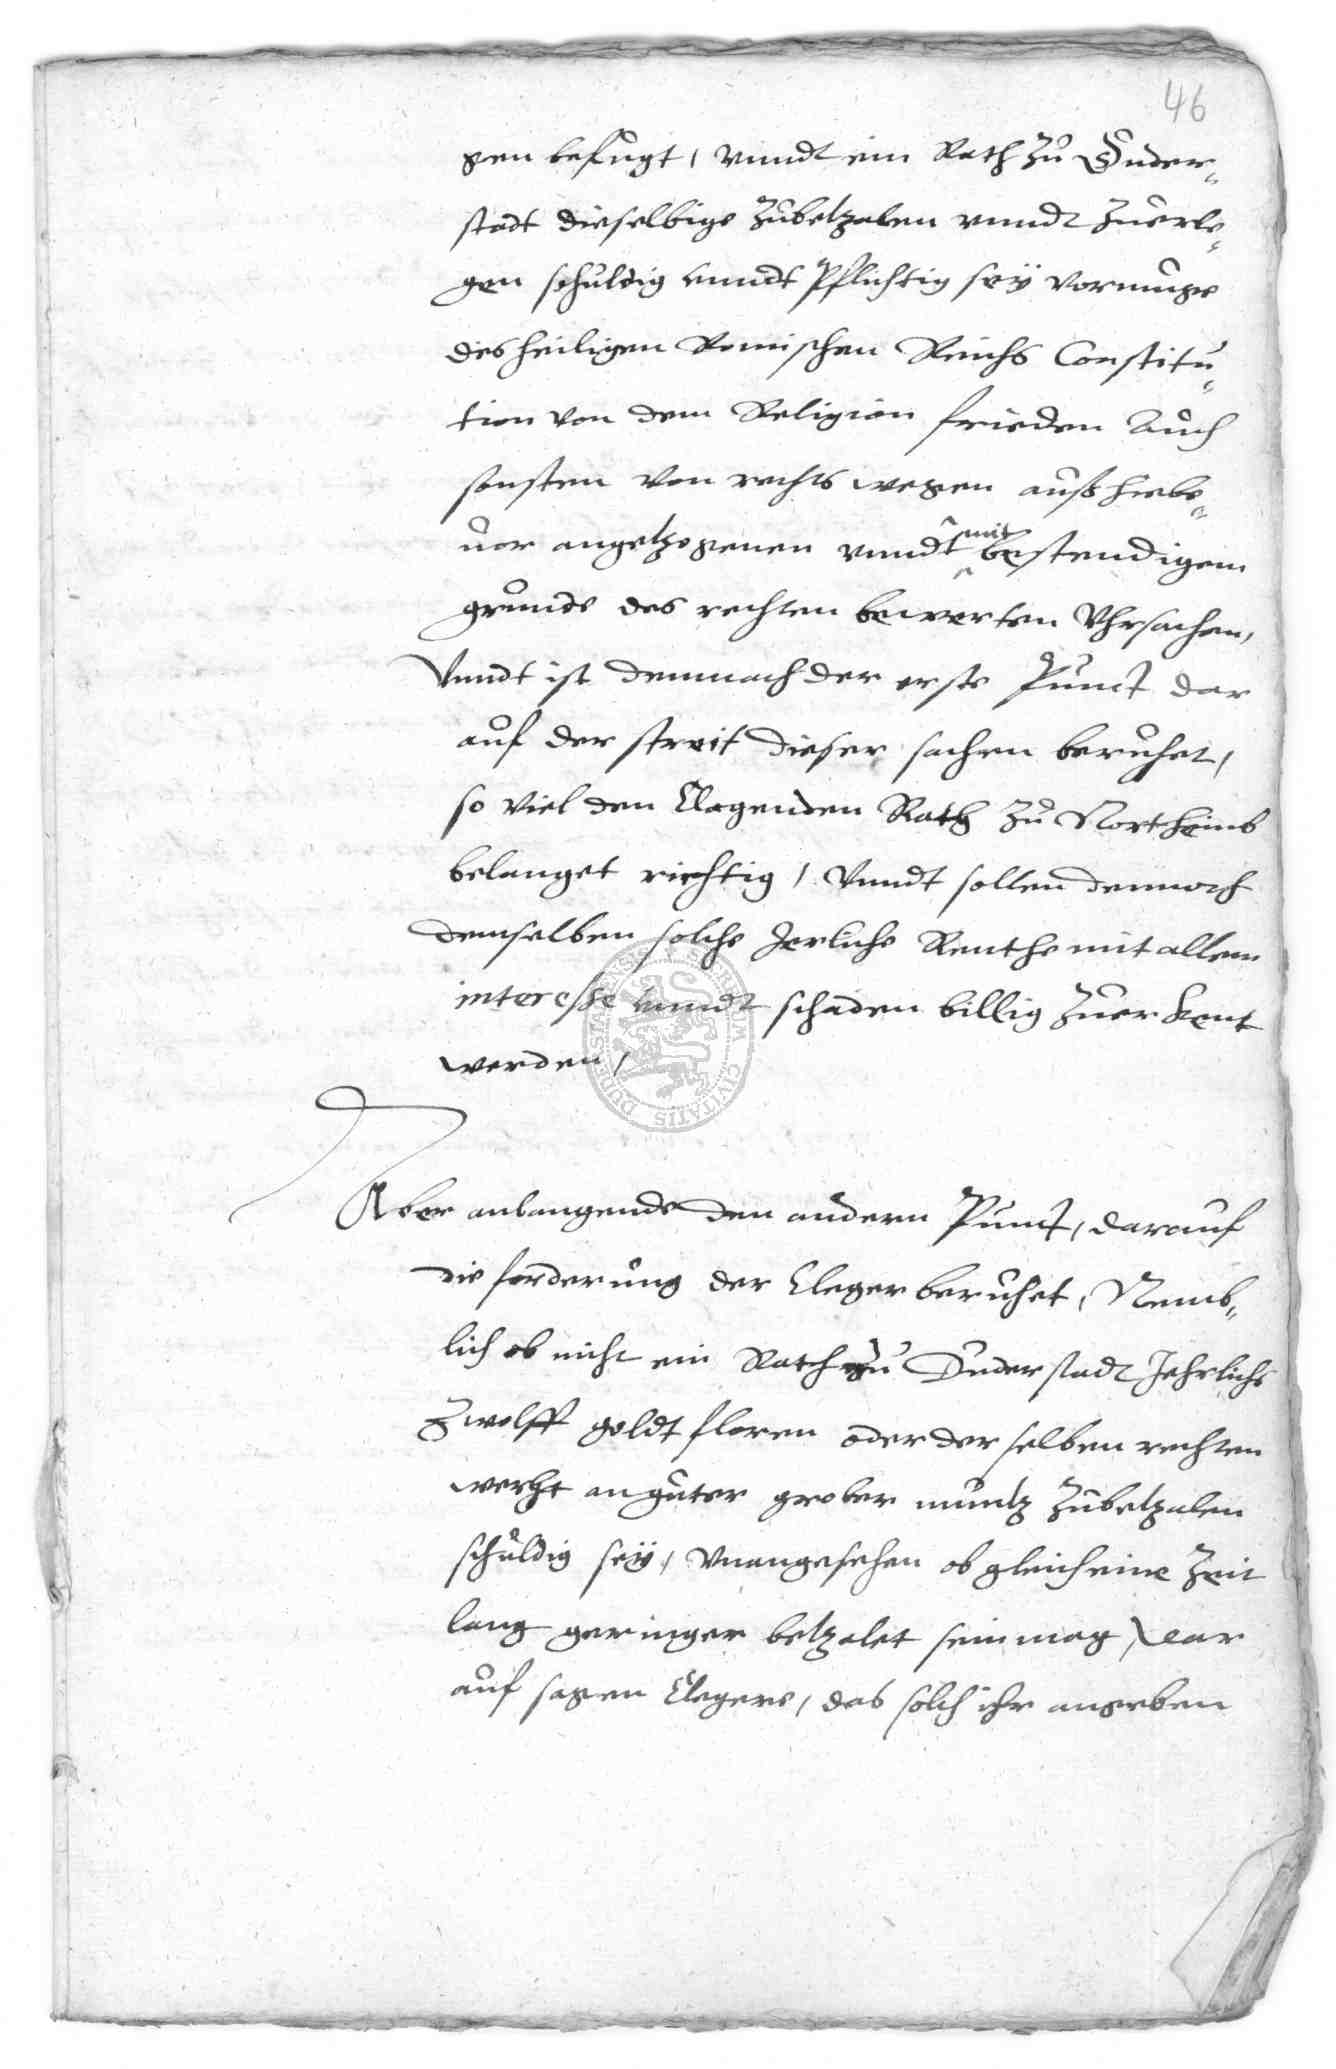 46
gen befugt, vnndt ein Rath zu Duder-
stadt dieselbige zubetzalen vnndt zuerle-
gen schuldig vnndt Pflichtig seÿ vormuge
des heiligen Romischen Reichs Constitu-
tion von dem Religion frieden Auch
sonsten von rechts wegen auß hiebe-
uor angetzogenen vnndt mit bestendigem
grunde des rechten bewerten Vhrsachen,
Vnndt ist demnach der erste Punct dar
auf der streit dieser sachen beruhet,
so viel den Clagenden Rath zu Northeimb
belanget richtig, Vnndt sollen dennoch
demselben solche Jerliche Renthe mit allem
interesse vnndt schaden billig zuerkent
werden,
Aber anlangende den andern Punct, darauf
die forderung der Cleger beruhet, Nemb-
lich ob nicht ein Rath zu Duderstadt Jehrlichs
Zwolff goldt floren oder derselben rechten
werht an guter grober muntz zubetzalen
schuldig seÿ, Vnangesehen ob gleich eine Zeit
lang geringer betzalet sein mag, Dar
auf sagen Clegere, das solch ihr angeben
SIGILLUM CIVITATIS DUDERSTADENSIS